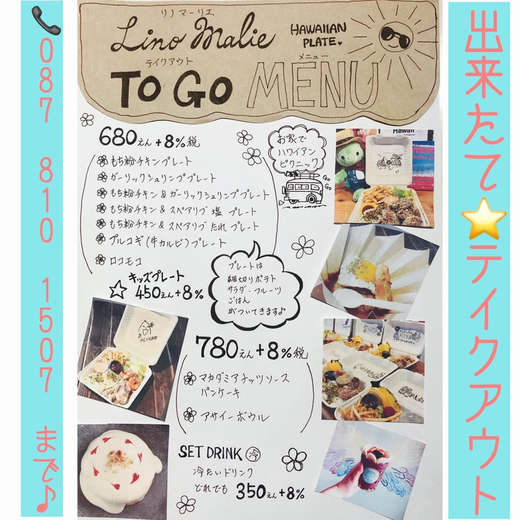 リノ マーリエ
Lino Malie
HAWAIIAN
PLATE.
テイクアウト
メニュー
TO GO MENU
680えん+8%税
もち粉チキンプレート
ガーリックシュリンププレート
もち粉チキン&ガーリックシュリンププレート
もち粉チキン&スペアリブ 塩 プレート
もち粉チキン&スペアリブ たれ プレート
プルコギ(牛カルビ)プレート
ロコモコ
キッズプレート
☆ 450えん+8%
お家で
ハワイアン
ピクニック
GO GO
プレートは
細切りポテト
サラダ・フルーツ
ごはん
がついてきますよ
780えん+8%税
マカダミアナッツソース
パンケーキ
アサイーボウル
SET DRINK 冷
冷たいドリンク
どれでも 350えん+8%
Hawaii
出来たて⭐テイクアウト
📞087 810 1507 まで♪